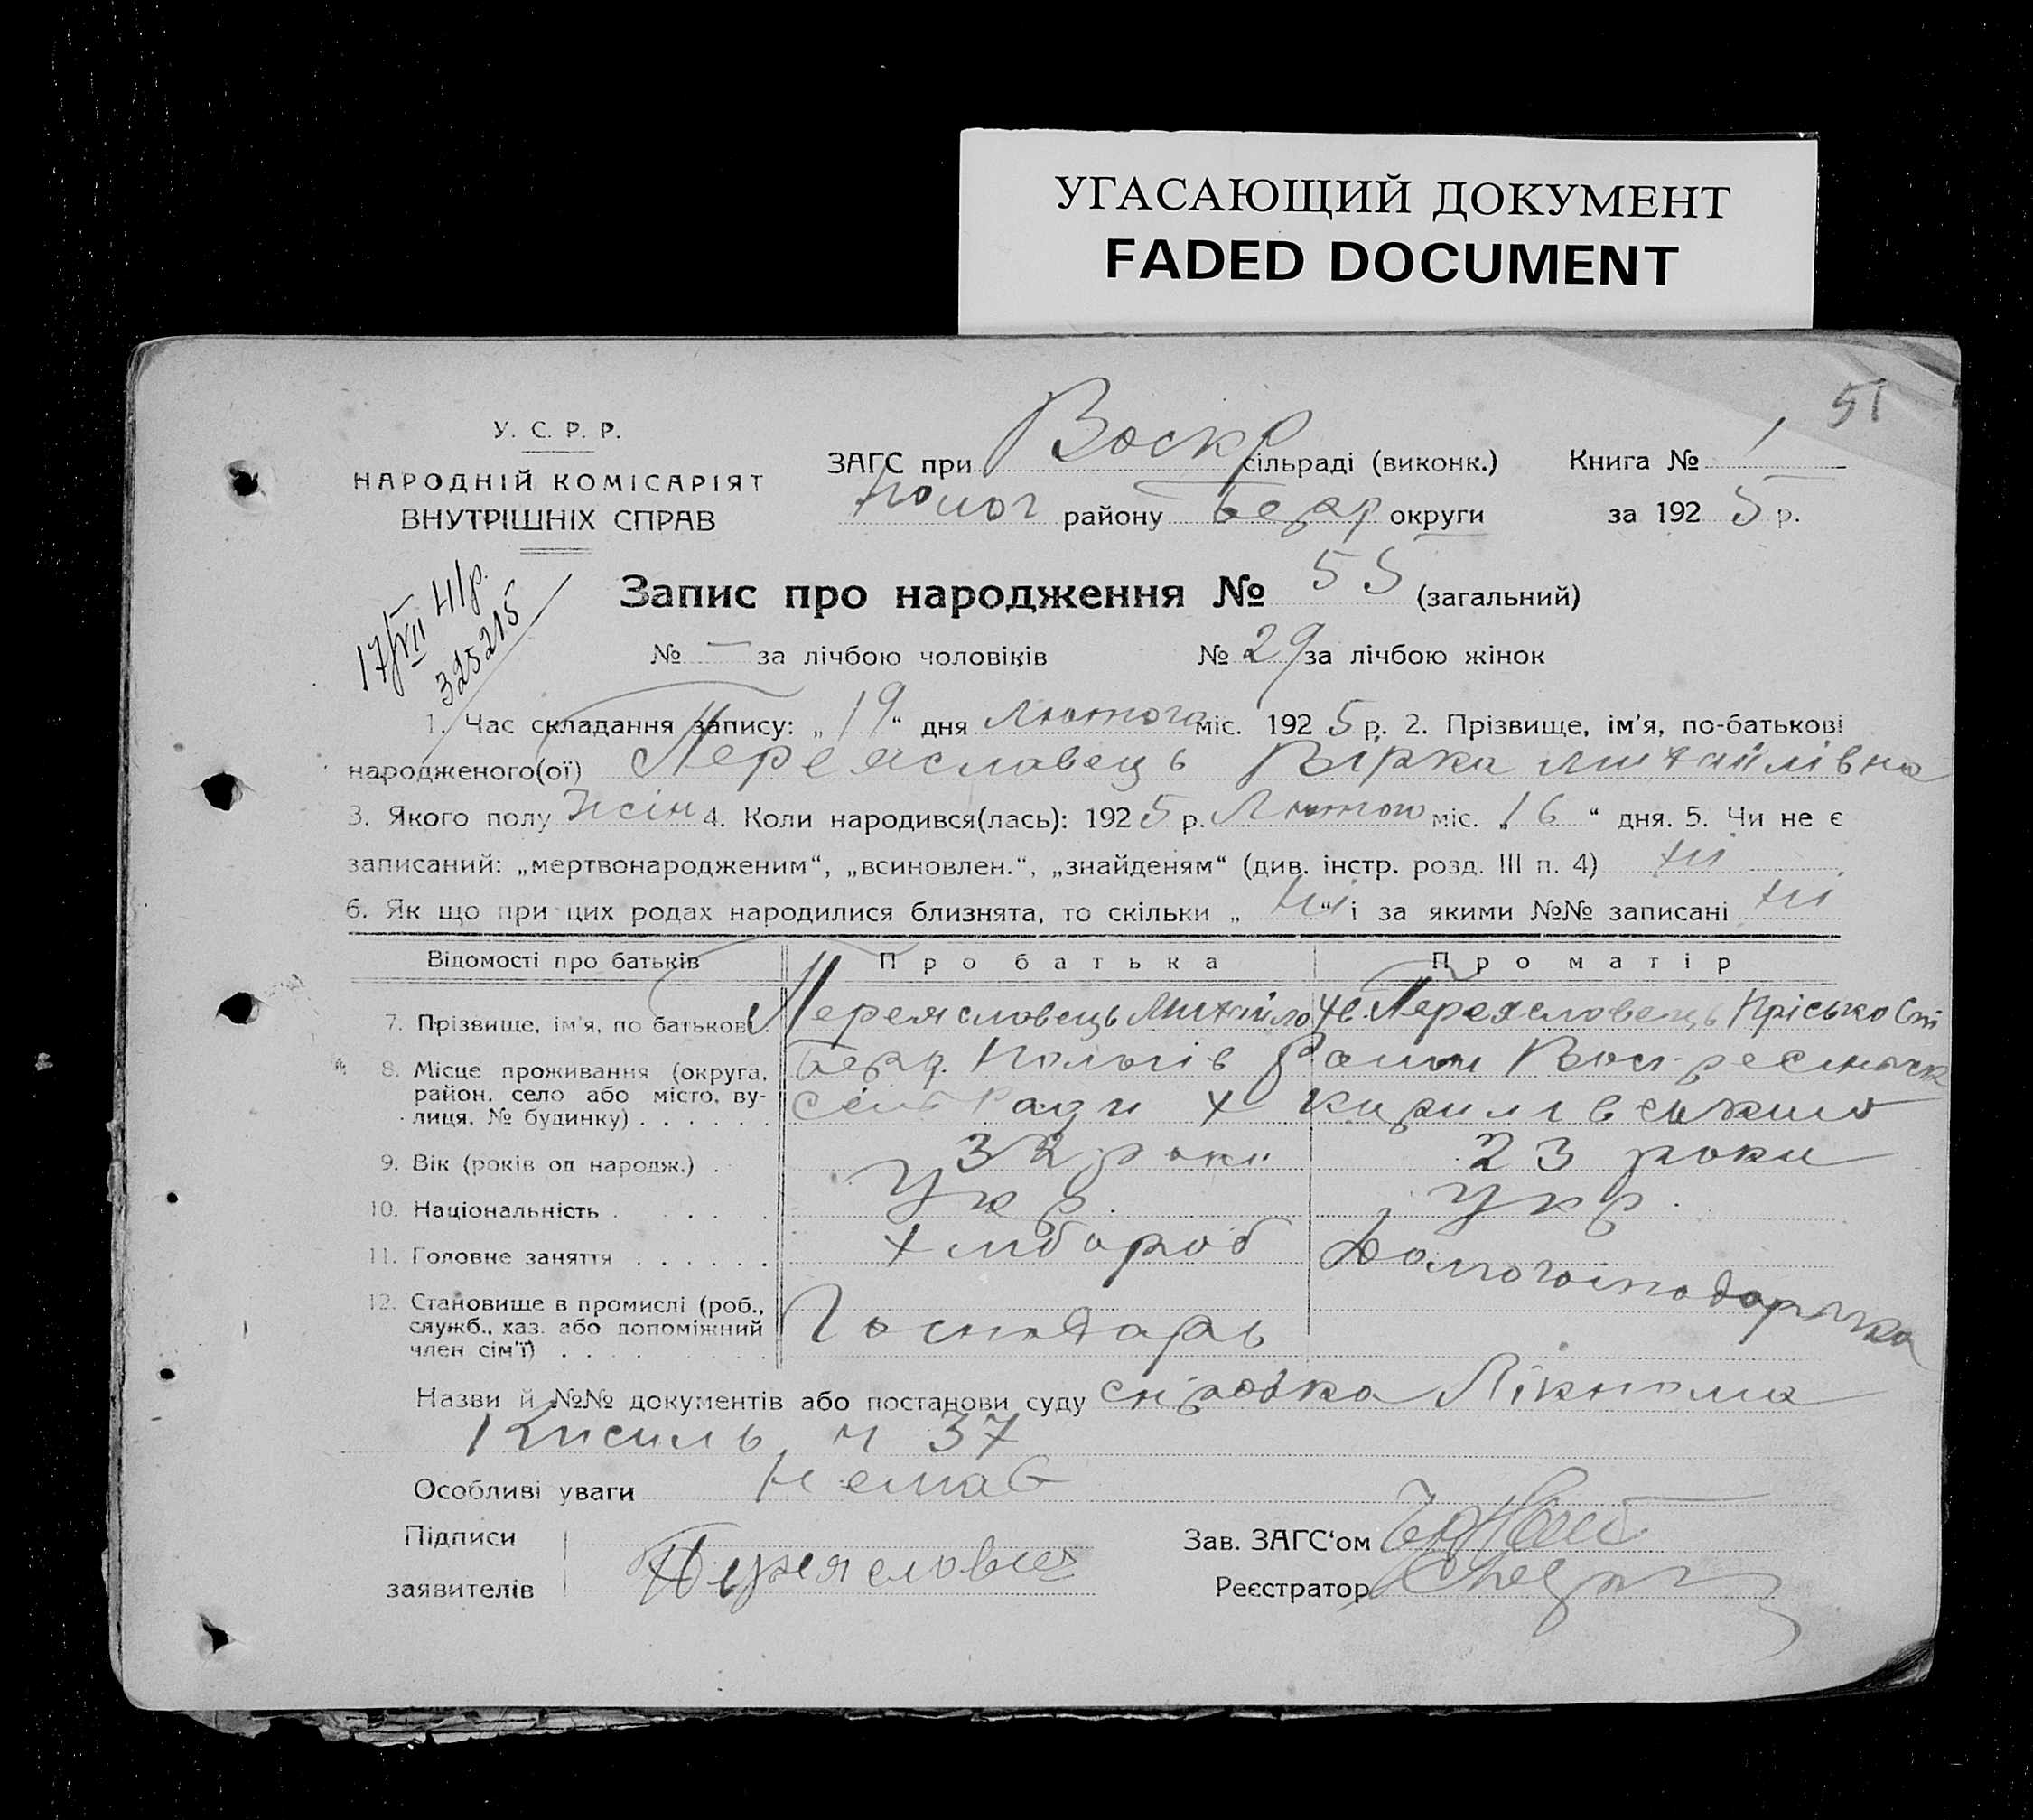 УГАСАЮЩИЙ ДОКУМЕНТ
FADED DOCUMENT
51
У. С. Р. Р.
НАРОДНІЙ КОМІСАРІЯТ
ВНУТРІШНІХ СПРАВ
ЗАГС при Воскр сільраді (виконк.) Книга № 1
Полог району Бердр округи за 1925 р.
17/VII 41р.
325215
Запис про народження № 55 (загальний)
№ — за лічбою чоловіків № 29 за лічбою жінок
1. Час складання запису: „19“ дня Лютого міс. 1925 р. 2. Прізвище, ім'я, по-батькові
народженого(ої) Переяславець Вірка Михайлівна
3. Якого полу Жін 4. Коли народився(лась): 1925 р. Лютого міс. „16“ дня. 5. Чи не є
записаний: „мертвонародженим“, „всиновлен.“, „знайденям“ (див. інстр. розд. III п. 4) ні
6. Як що при цих родах народилися близнята, то скільки „ні“ і за якими №№ записані ні
Відомості про батьків Про батька Про матір
7. Прізвище, ім'я, по батькові Переясловець Михайло Переясловець Пріська
8. Місце проживання (округа, район, село або місто, вулиця, № будинку) Берд. Пологів Район
Ради х Кирилівський
9. Вік (років од народж.) 32 роки 23 роки
10. Національність Укр. Укр.
11. Головне заняття Хлібороб Домогосподарька
12. Становище в промислі (роб., служб., хаз. або допоміжний член сім'ї) Господарь
Назви й №№ документів або постанови суду справка Лікпома
Кисиль, ч 37
Особливі уваги Немає
Підписи
заявителів Переясловец
Зав. ЗАГС'ом
Реєстратор